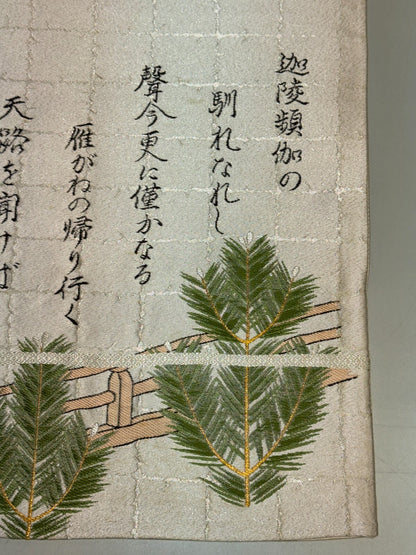 迦陵頻伽の
馴れなれし
聲今更に僅かなる
雁がねの帰り行く
天路を聞けば